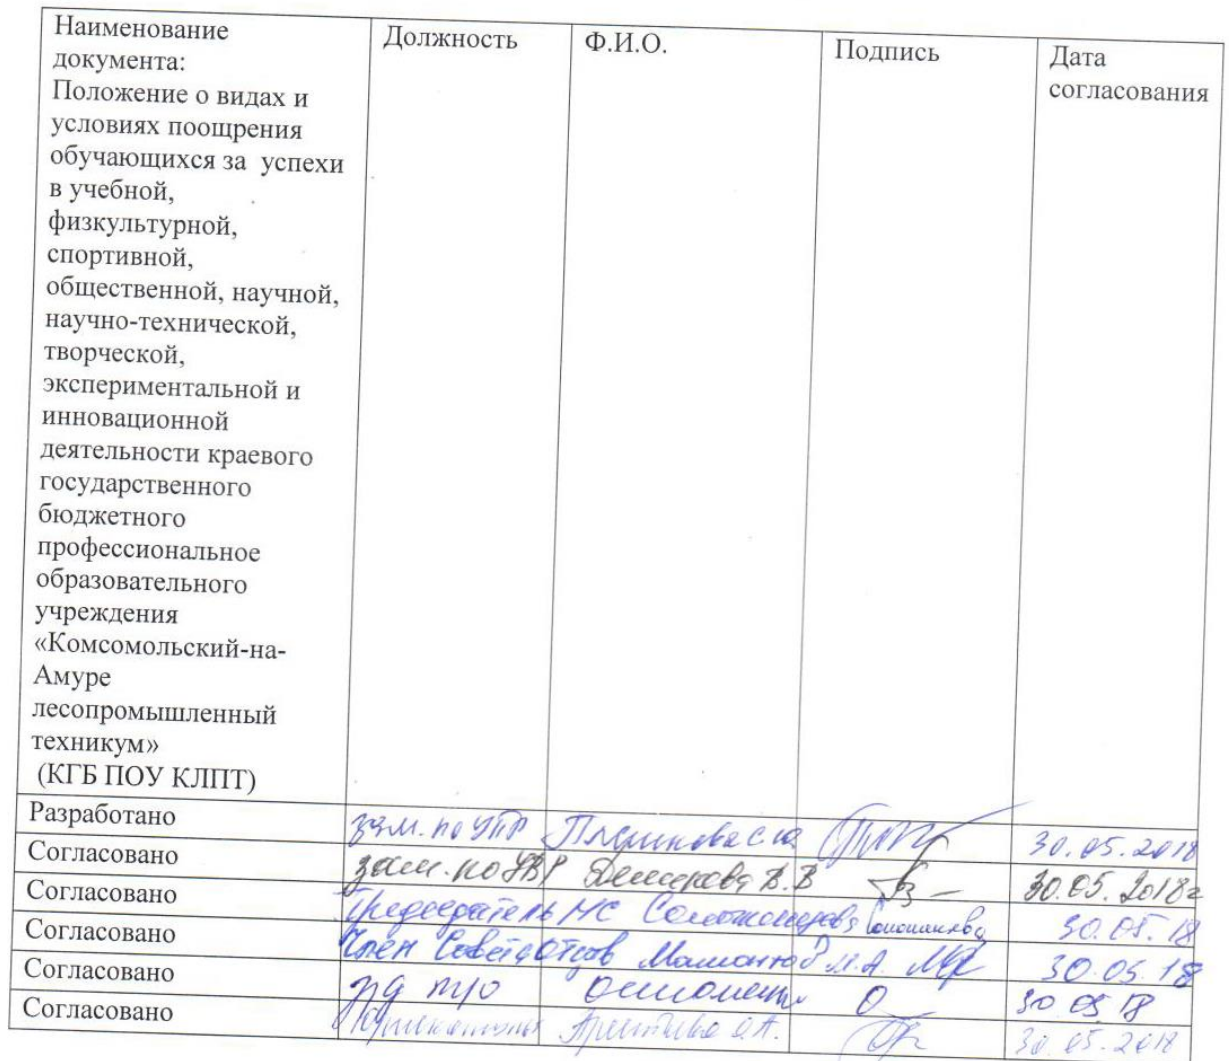 Наименование
документа:
Положение о видах и
условиях поощрения
обучающихся за успехи
в учебной,
физкультурной,
спортивной,
общественной, научной,
научно-технической,
творческой,
экспериментальной и
инновационной
деятельности краевого
государственного
бюджетного
профессиональное
образовательного
учреждения
«Комсомольский-на-
Амуре
лесопромышленный
техникум»
(КГБ ПОУ КЛПТ)
Должность
Ф.И.О.
Подпись
Дата
согласования
Разработано зам. по УПР 30.05.2018
Согласовано зам. по УВР В.В 30.05.2018г
Согласовано Председатель МС 30.05.18
Согласовано Член Совета отцов Мамонтов М.А. 30.05.18
Согласовано 30 05 18
Согласовано 30.05.2018